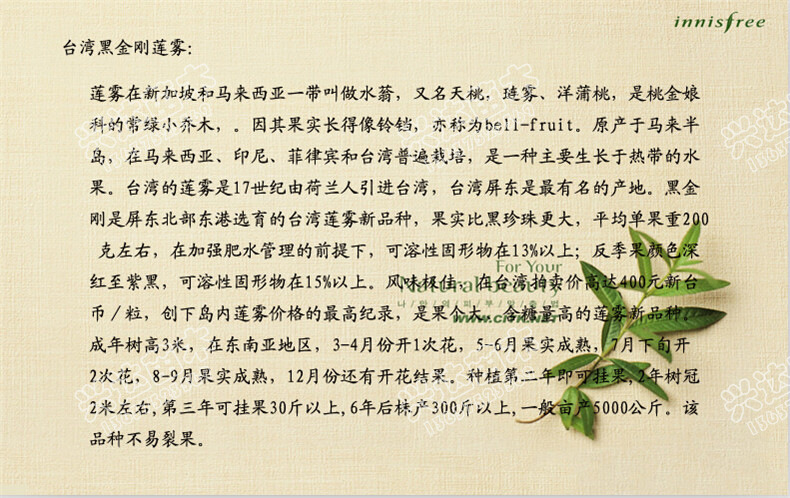 innisfree
台湾黑金刚莲雾:
莲雾在新加坡和马来西亚一带叫做水蓊，又名天桃，琏雾、洋蒲桃，是桃金娘
科的常绿小乔木，。因其果实长得像铃铛，亦称为bell-fruit。原产于马来半
岛，在马来西亚、印尼、菲律宾和台湾普遍栽培，是一种主要生长于热带的水
果。台湾的莲雾是17世纪由荷兰人引进台湾，台湾屏东是最有名的产地。黑金
刚是屏东北部东港选育的台湾莲雾新品种，果实比黑珍珠更大，平均单果重200
克左右，在加强肥水管理的前提下，可溶性固形物在13%以上；反季果颜色深
红至紫黑，可溶性固形物在15%以上。风味极佳，在台湾拍卖价高达400元新台
币／粒，创下岛内莲雾价格的最高纪录，是果个大、含糖量高的莲雾新品种，
成年树高3米，在东南亚地区，3-4月份开1次花，5-6月果实成熟，7月下旬开
2次花，8-9月果实成熟，12月份还有开花结果。种植第二年即可挂果,2年树冠
2米左右,第三年可挂果30斤以上,6年后株产300斤以上,一般亩产5000公斤。该
品种不易裂果。
For Your